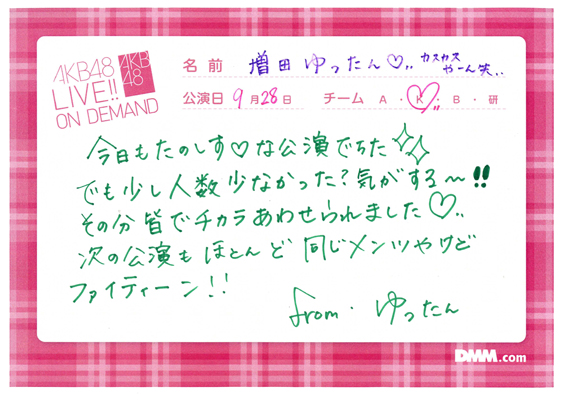 AKB48
LIVE!!
ON DEMAND
AKB
48
名前 増田ゆったん♡‥ カスカス
やーん笑‥
公演日 9月28日 チーム A・K・B・研
今日もたのしす♡な公演でちた
でも少し人数少なかった?気がする〜!!
その分皆でチカラあわせられました♡‥
次の公演もほとんど同じメンツやけど
ファイティーン!!
from. ゆったん
DMM.com